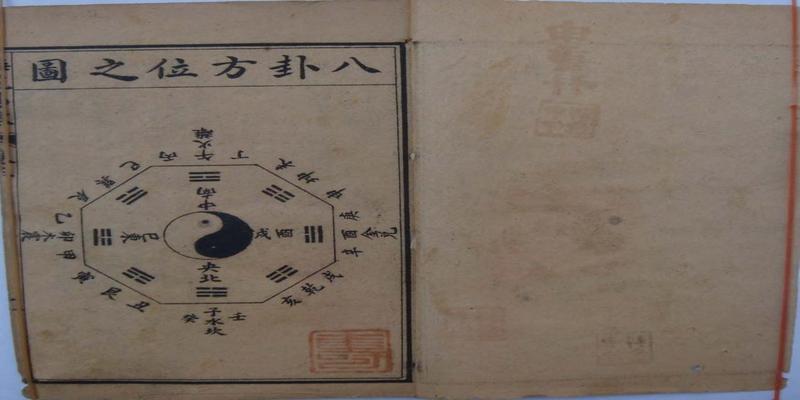 八卦方位之圖
離
火
午
丁
丙
巳
巽
辰
乙
卯
甲
寅
艮
丑
癸
子
水
坎
壬
亥
乾
戌
辛
酉
金
兌
庚
申
坤
未
南
中
央
北
東
巳
酉
戌